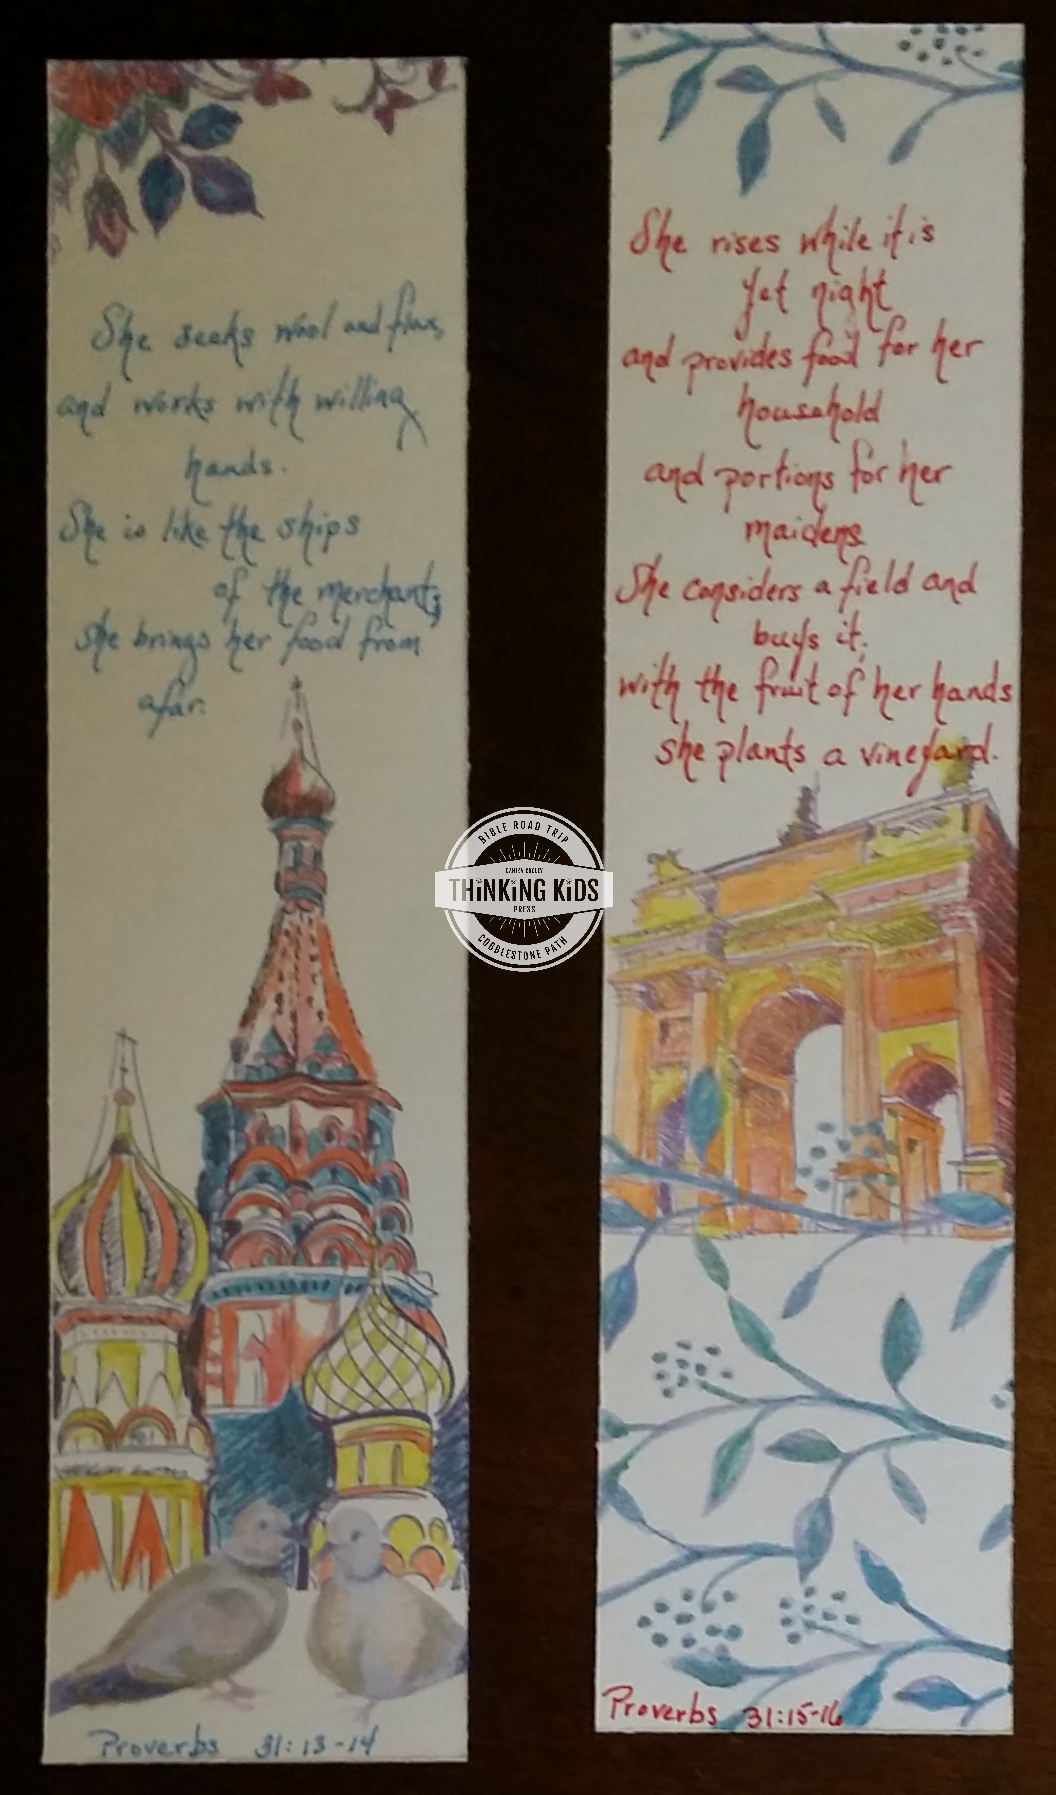 She seeks wool and flax,
and works with willing
hands.
She is like the ships
of the merchant;
she brings her food from
afar.
Proverbs 31:13-14
She rises while it is
yet night
and provides food for her
household
and portions for her
maidens
She considers a field and
buys it;
with the fruit of her hands
she plants a vineyard.
Proverbs 31:15-16
BIBLE ROAD TRIP
DANIKA COOLEY
THiNKiNG KiDS
PRESS
COBBLESTONE PATH